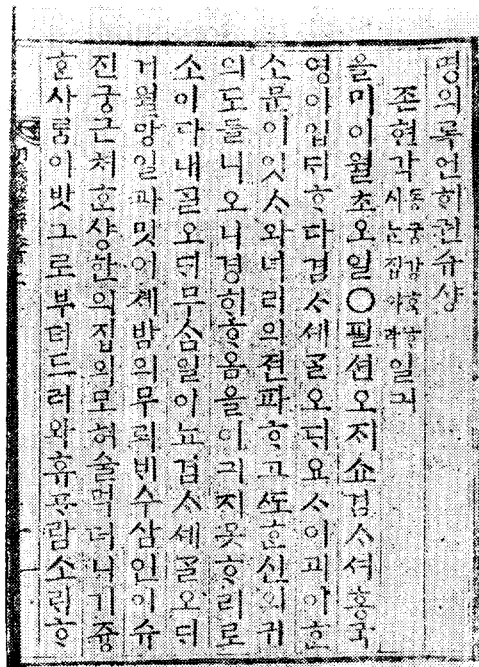 명의록언ᄒᆡ권슈샹
존현각 시ᄂᆞᆫ집이라 일긔
을미이월초오일○필션오ᄌᆡ쇼겸ᄉᆞ셔홍국
영이입ᄃᆡᄒᆞ다겸ᄉᆞ셰ᄀᆞᆯ오ᄃᆡ요ᄉᆞ이괴이ᄒᆞᆫ
소문이잇ᄉᆞ와녀리의젼파ᄒᆞ고ᄯᅩᄒᆞᆫ신의귀
의도들니오니경ᄒᆡᄒᆞ옴을이긔지못ᄒᆞ리로
소이다내ᄀᆞᆯ오ᄃᆡ무ᄉᆞᆷ일이뇨겸ᄉᆞ셰ᄀᆞᆯ오ᄃᆡ
거월망일과밋어졔밤의무뢰ᄇᆡ수삼인이슈
진궁근쳐ᄒᆞᆫ샹한의집의모혀술먹더니기즁
ᄒᆞᆫ사ᄅᆞᆷ이밧그로부터드러와휴프람소ᄅᆡᄒᆞ